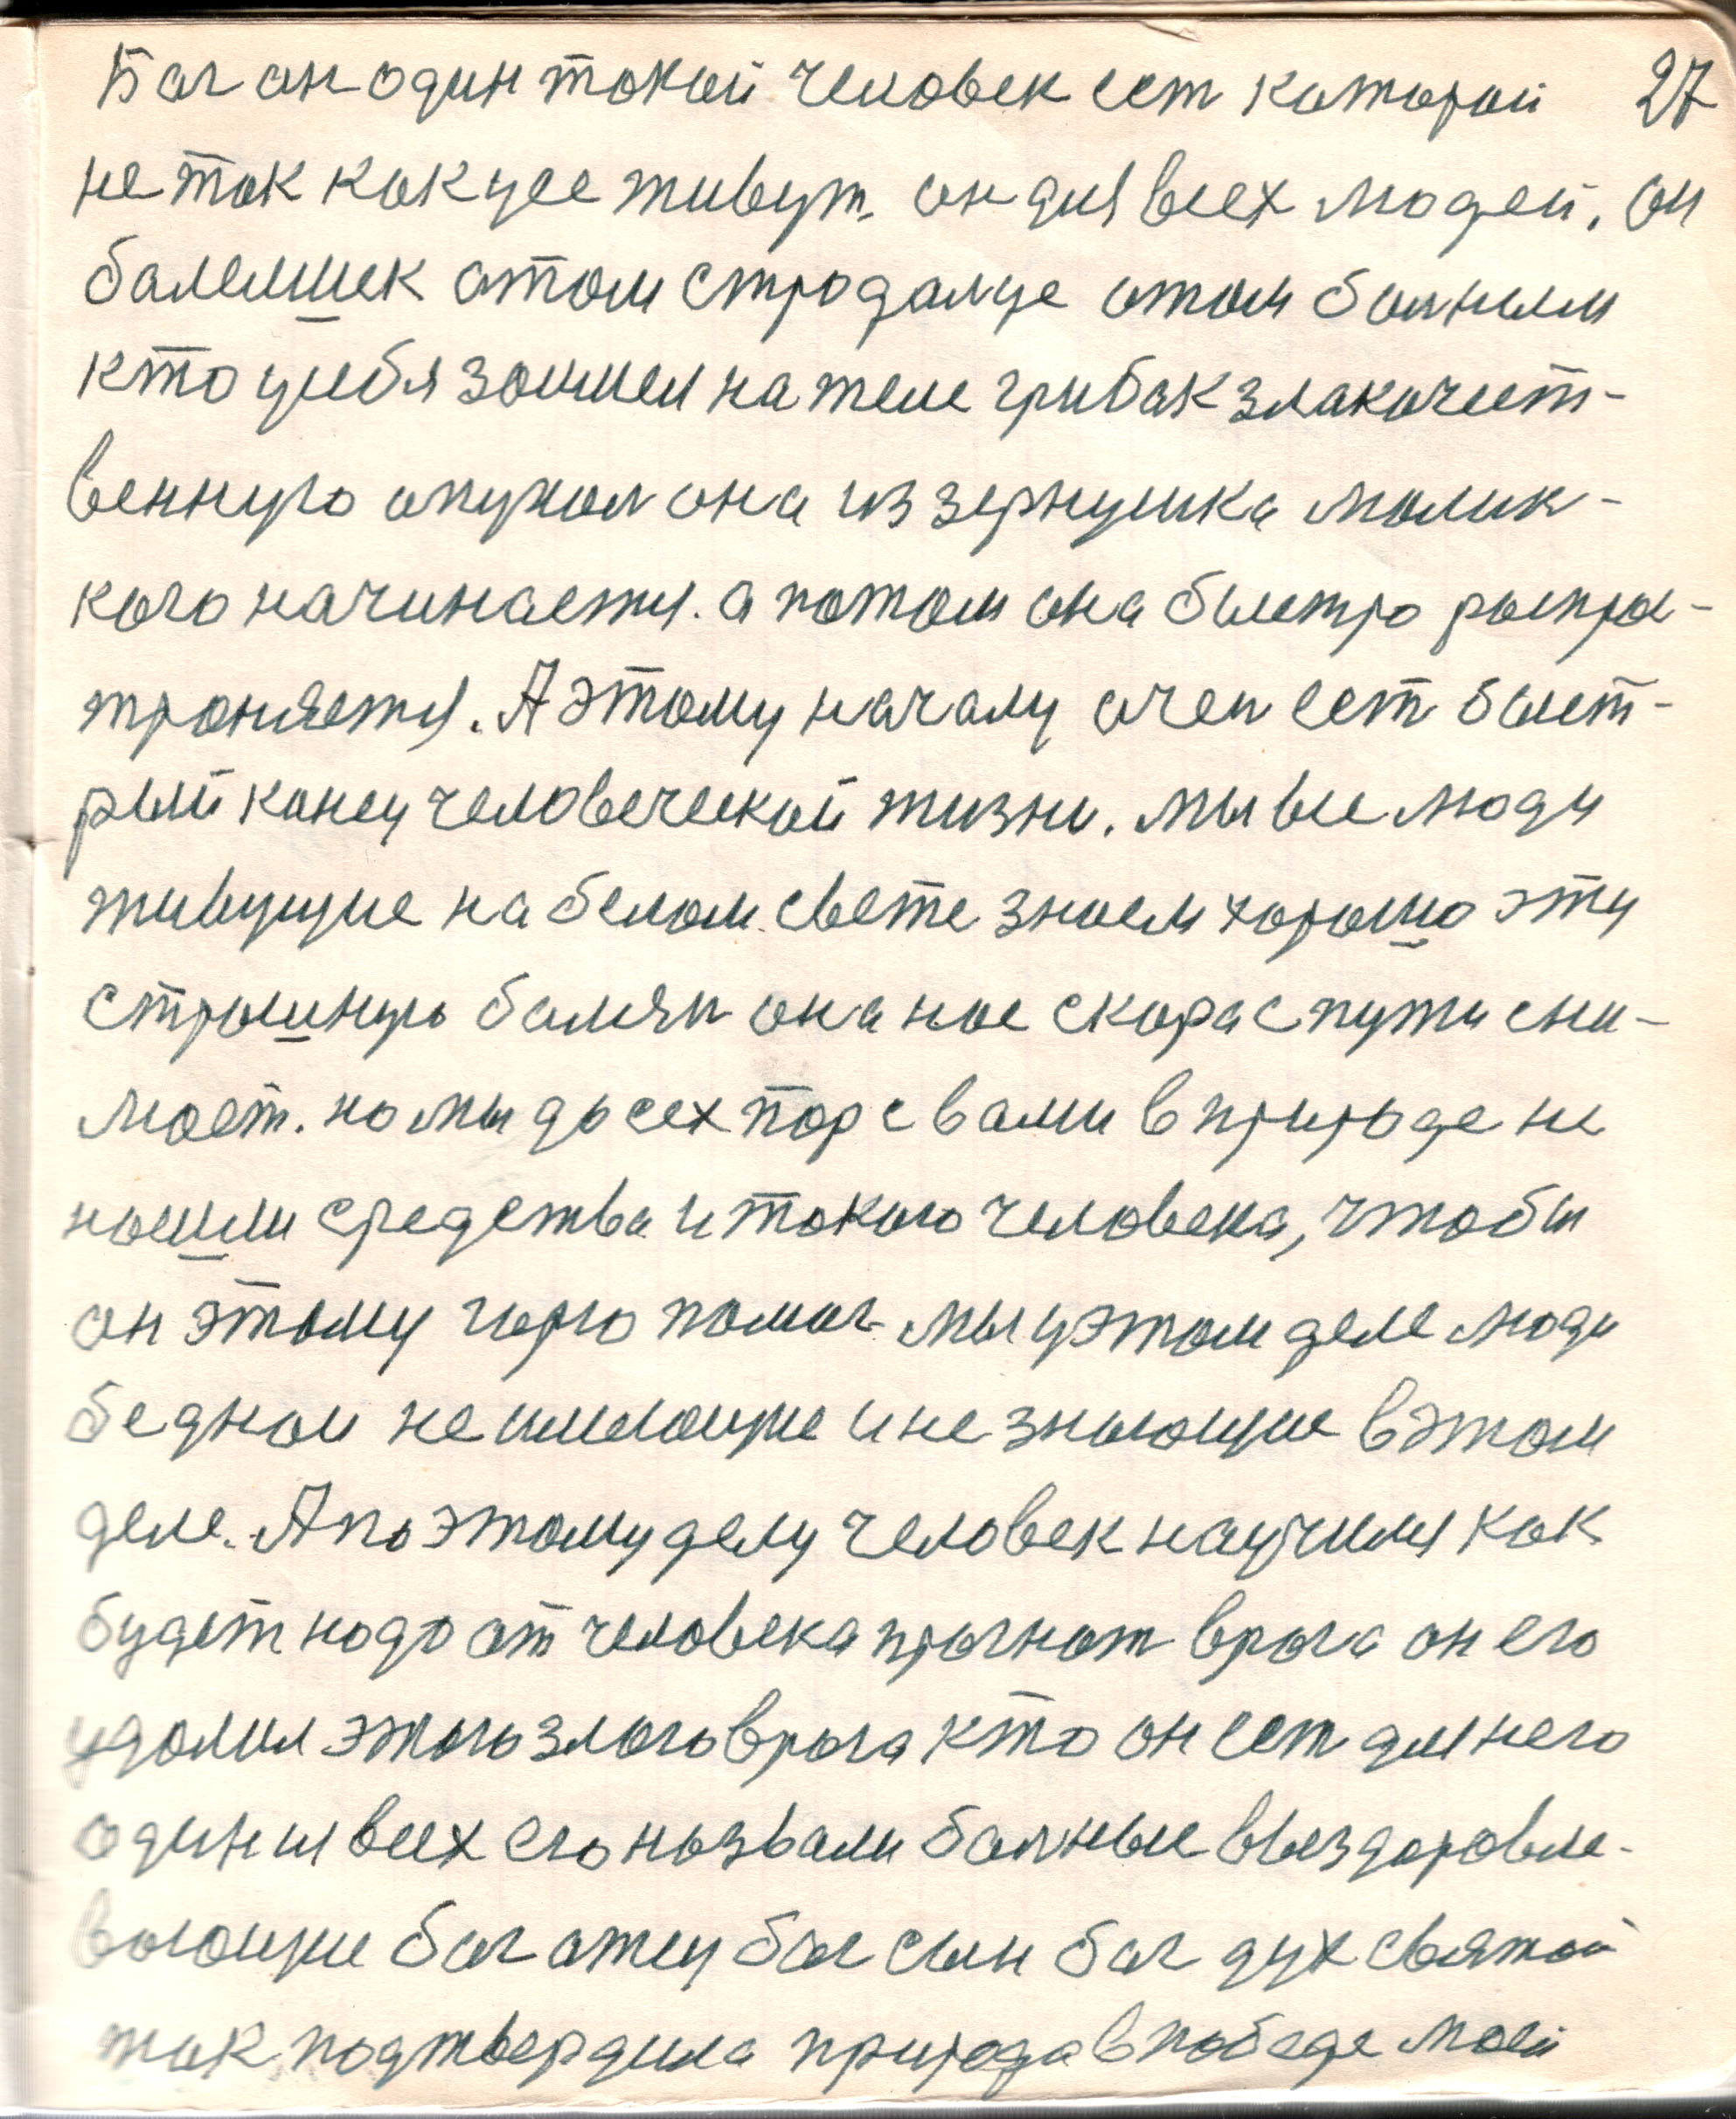 Бог он один такой человек ест каторай 27
не так как усе живут. он для всех людей. он
балельшек отом страдальце отом больным
кто у себя зашел на теле грибак злакачест-
венную опухол она из зернушка малик-
кого начинается. а потом она быстро распра-
траняется. А этому началу очен ест быст-
рый конец человеческай жизни. мы все люди
живущие на белом свете знаем хорошо эту
страшную балезн она нас скора с пути сни-
мает. но мы до сех пор с вами в природе не
нашли средства и такого человека, чтобы
он этому горю помог мы у этом деле люди
бедном не имеющие и не знающие в этом
деле. А по этому делу человек научился как
будет надо от человека прогнат врага он его
удалил этого злого врага кто он ест для него
один и всех его назвали больные выездоровле-
вающие бог отец бог сын бог дух святой
так подтвердила природа в победе моей